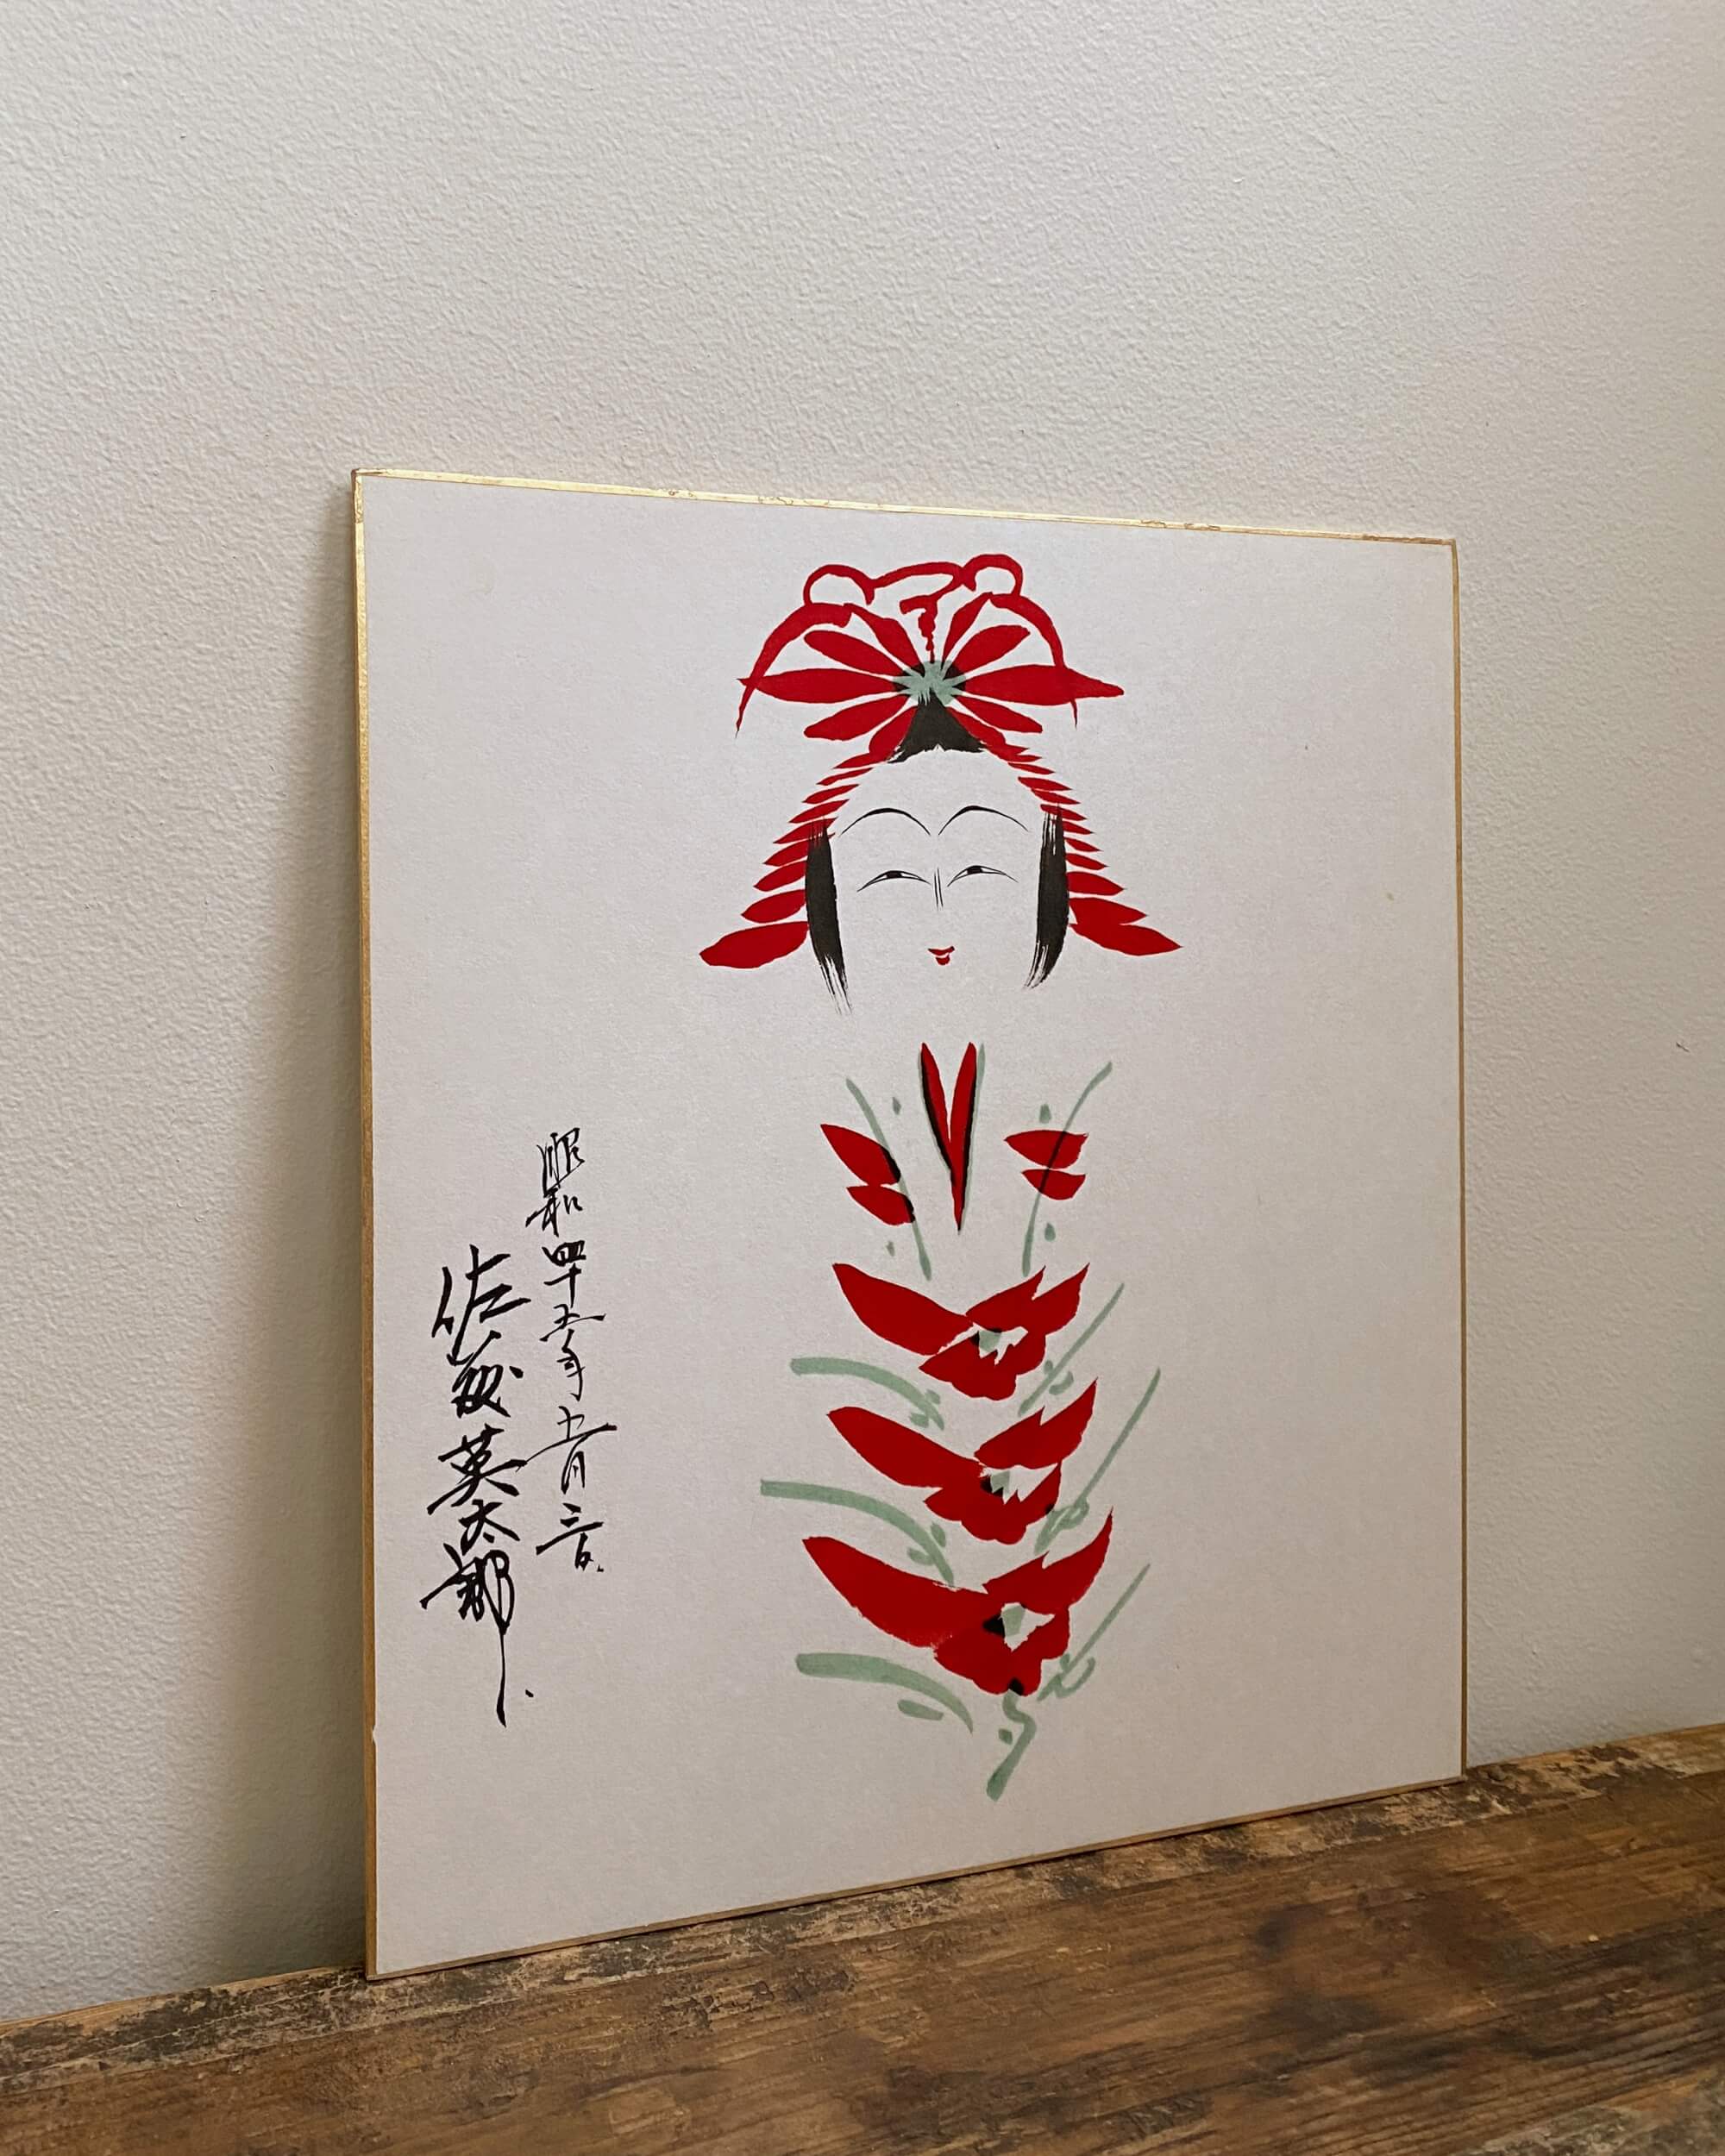 昭和四十五年十一月三日
佐藤英太郎